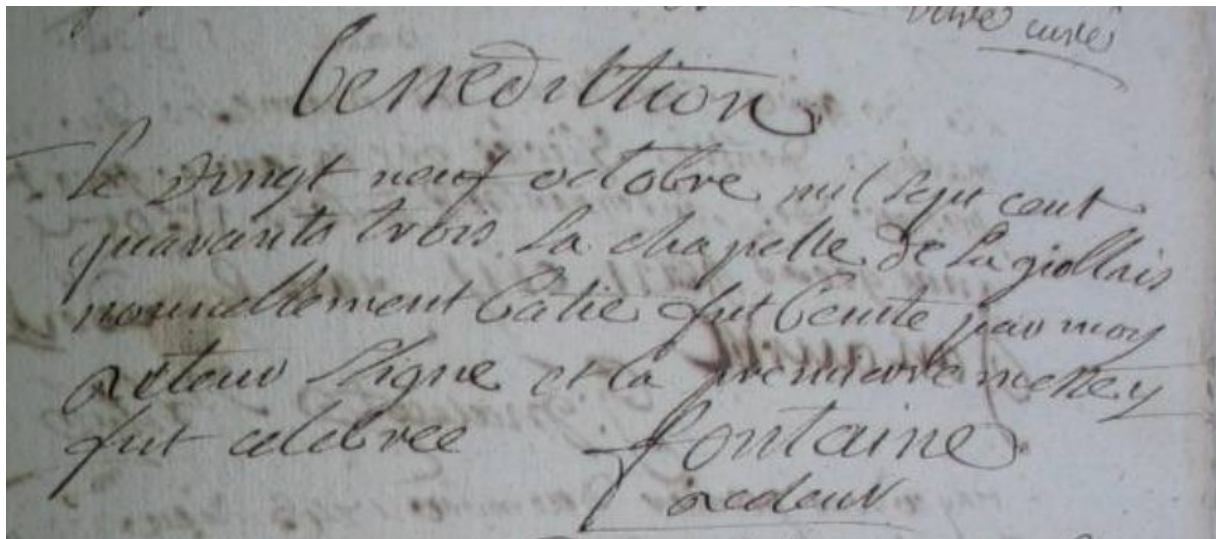 benediction
Le vingt neuf octobre mil sept cent
quarante trois la chapelle de la giollais
nouvellement batie fut benite par moy
recteur signe et la premiere messe y
fut celebree fontaine
recteur